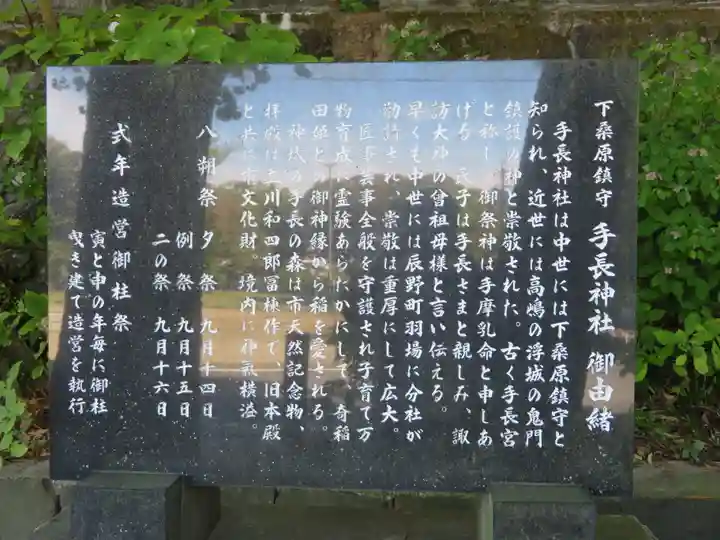 下桑原鎮守 手長神社 御由緒
手長神社は中世には下桑原鎮守と
知られ、近世には高嶋の浮城の鬼門
鎮護の神と崇敬された。古く手長宮
と称し、御祭神は手摩乳命と申しあ
げる。氏子は手長さまと親しみ、諏
訪大神の曾祖母様と言い伝える。
早くも中世には辰野町羽場に分社が
勧請され、崇敬は重厚にして広大。
匠事芸事全般を守護され子育て万
物育成に霊験あらたかにして、奇稲
田姫との御神縁から稲を愛される。
神域の手長の森は市天然記念物、
拝殿は立川和四郎冨棟作で、旧本殿
と共に市文化財。境内に神氣横溢。
八朔祭 夕祭 九月十四日
例祭 九月十五日
二の祭 九月十六日
式年造営御柱祭
寅と申の年毎に御柱
曳き建て造営を執行